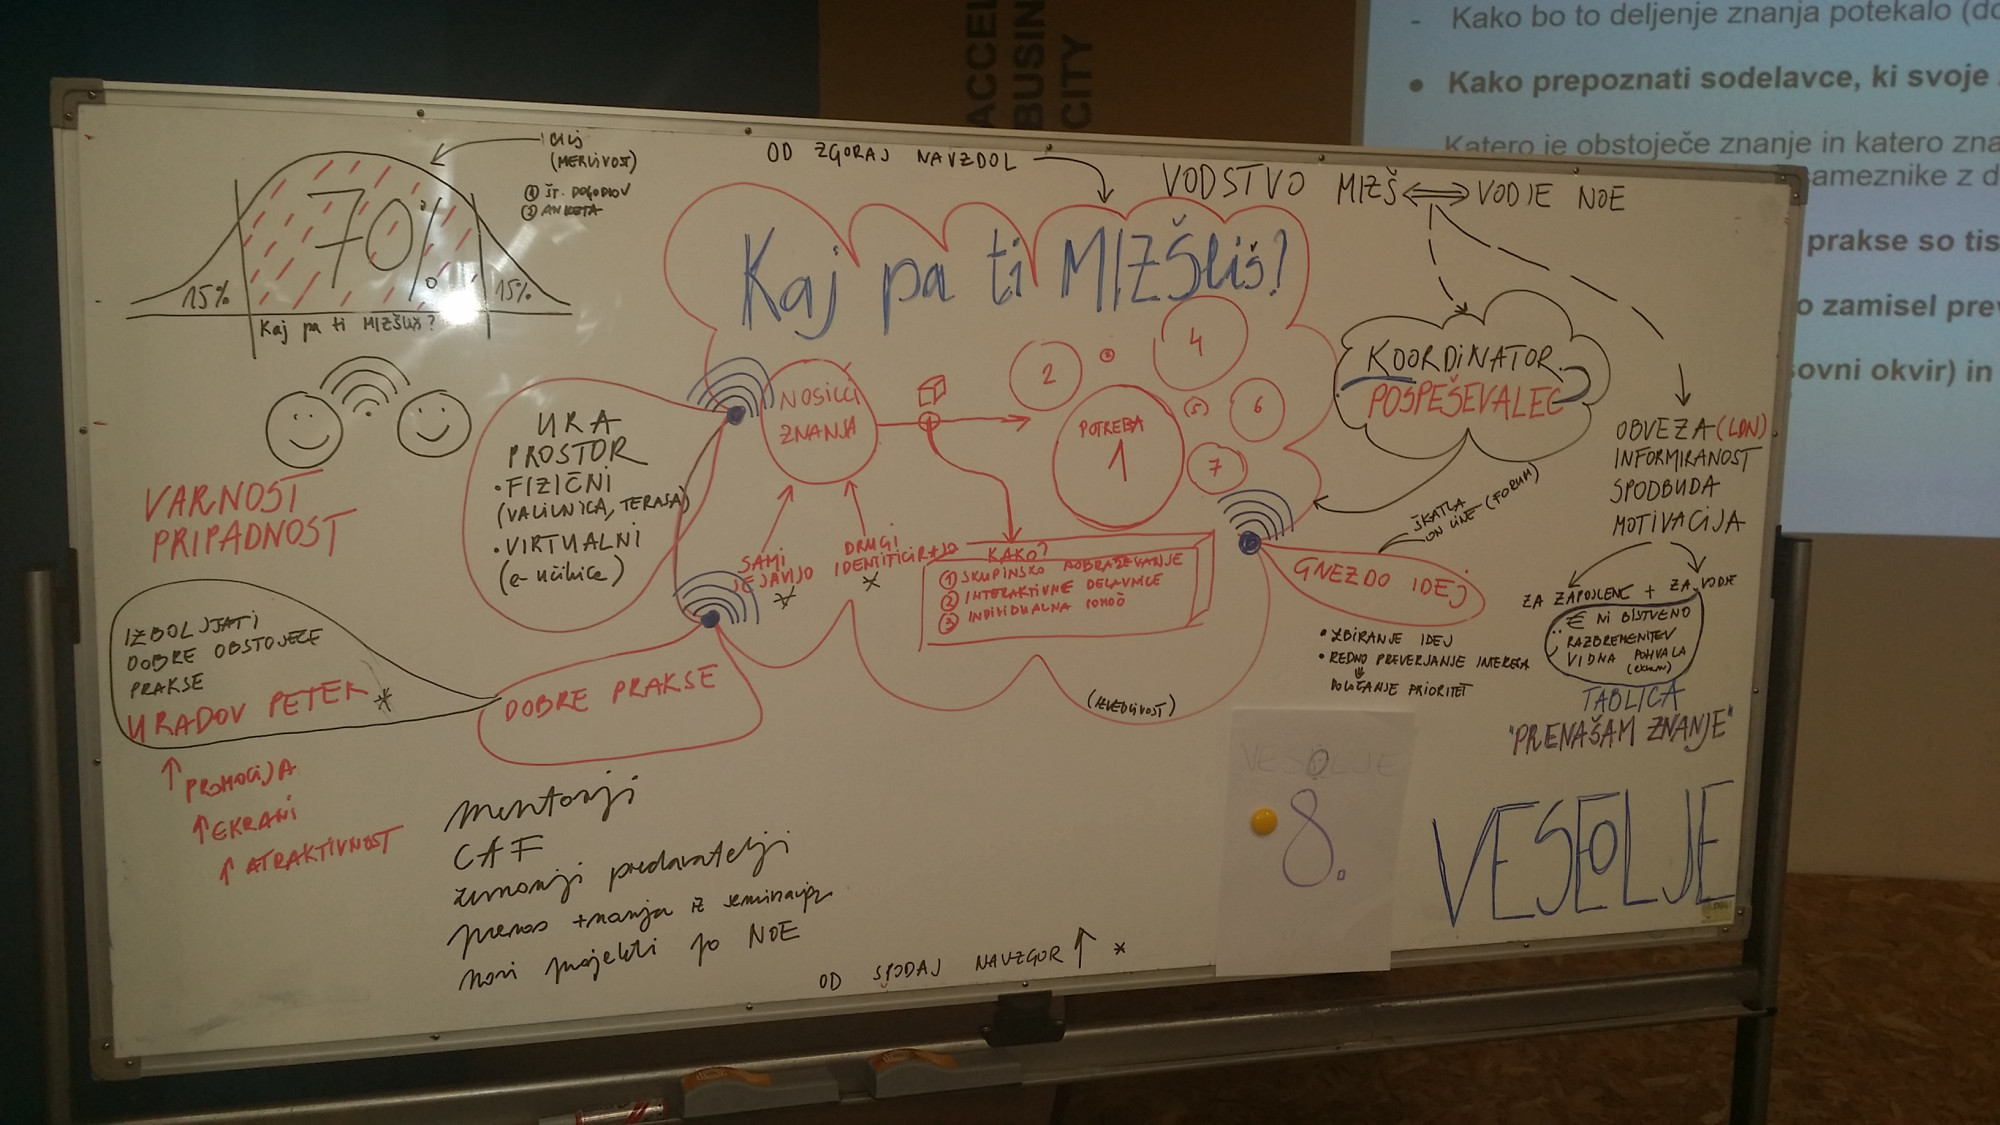 ACCEL
BUSIN
CITY
- Kako bo to deljenje znanja potekalo (do
• Kako prepoznati sodelavce, ki svoje
Katero je obstoječe znanje in katero zna
sameznike z d
prakse so tis
o zamisel prev
sovni okvir) in
CILJ
(MERLJIVOST)
① ŠT. DOGODKOV
② ANKETA
70%
15%
15%
Kaj pa ti MIZŠliš?
OD ZGORAJ NAVZDOL
VODSTVO MIZŠ ⟺ VODJE NOE
Kaj pa ti MIZŠliš?
VARNOST
PRIPADNOST
URA
PROSTOR
• FIZIČNI
(VALILNICA, TERASA)
• VIRTUALNI
(e-učilnice)
NOSILCI
ZNANJA
SAMI
SE JAVIJO
DRUGI
IDENTIFICIRAJO
*
2
3
4
POTREBA
1
5
6
7
KAKO?
① SKUPINSKO IZOBRAŽEVANJE
② INTERAKTIVNE DELAVNICE
③ INDIVIDUALNA POMOČ
KOORDINATOR
POSPEŠEVALEC
OBVEZA (LDN)
INFORMIRANOST
SPODBUDA
MOTIVACIJA
ZA ZAPOSLENE + ZA VODJE
€ NI BISTVENO
RAZBREMENITEV
VIDNA POHVALA
(EKRANI)
TABLICA
"PRENAŠAM ZNANJE"
ŠKATLA
ON LINE (FORUM)
GNEZDO IDEJ
• ZBIRANJE IDEJ
• REDNO PREVERJANJE INTERESA
DOLOČANJE PRIORITET
IZBOLJŠATI
DOBRE OBSTOJEČE
PRAKSE
URADOV PETEK *
↑ PROMOCIJA
↑ EKRANI
↑ ATRAKTIVNOST
DOBRE PRAKSE
mentorji
CAF
zunanji predavatelji
prenos znanja iz seminarjev
novi projekti po NOE
OD SPODAJ NAVZGOR ↑ *
VESOLJE
8.
VESOLJE